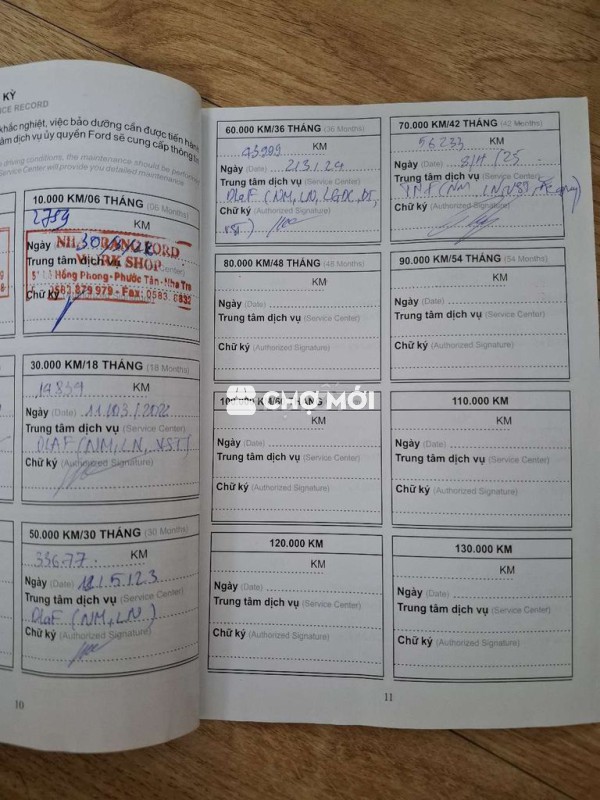 KỲ
NCE RECORD
khắc nghiệt, việc bảo dưỡng cần được tiến hàn
âm dịch vụ ủy quyền Ford sẽ cung cấp thông
driving conditions, the maintenance should be
Service Center will provide you detailed maintenance
10.000 KM/06 THÁNG (06 Months)
KM
Ngày
NHA TRANG FORD
Trung tâm dịch
WORK SHOP
Hồng Phong-Phước Tân-Nha Tra
Chữ ký 0583.879 979 - Fax: 0583. 6832
30.000 KM/18 THÁNG (18 Months)
19839 KM
Ngày (Date) 11/03/2022
Trung tâm dịch vụ (Service Center)
DLAF (NM, LN, VST)
Chữ ký (Authorized Signature)
50.000 KM/30 THÁNG (30 Months)
33677 KM
Ngày (Date) 12/5/23
Trung tâm dịch vụ (Service Center)
DLaF (NM, LN)
Chữ ký (Authorized Signature)
10
60.000 KM/36 THÁNG (36 Months)
43999 KM
Ngày (Date) 2/3/24
Trung tâm dịch vụ (Service Center)
DLaF (NM, LN,
Chữ ký (Authorized Signature)
70.000 KM/42 THÁNG (42 Months)
56233 KM
Ngày (Date) 8/4/25
Trung tâm dịch vụ (Service Center)
(NM, LN,
Chữ ký (Authorized Signature)
80.000 KM/48 THÁNG (48 Months)
KM
Ngày (Date)
Trung tâm dịch vụ (Service Center)
Chữ ký (Authorized Signature)
90.000 KM/54 THÁNG (54 Months)
KM
Ngày (Date)
Trung tâm dịch vụ (Service Center)
Chữ ký (Authorized Signature)
CHỢ MỚI
100.000 KM/60 THÁNG
KM
Ngày (Date)
Trung tâm dịch vụ (Service Center)
Chữ ký (Authorized Signature)
110.000 KM
KM
Ngày (Date)
Trung tâm dịch vụ (Service Center)
Chữ ký (Authorized Signature)
120.000 KM
KM
Ngày (Date)
Trung tâm dịch vụ (Service Center)
Chữ ký (Authorized Signature)
130.000 KM
KM
Ngày (Date)
Trung tâm dịch vụ (Service Center)
Chữ ký (Authorized Signature)
11